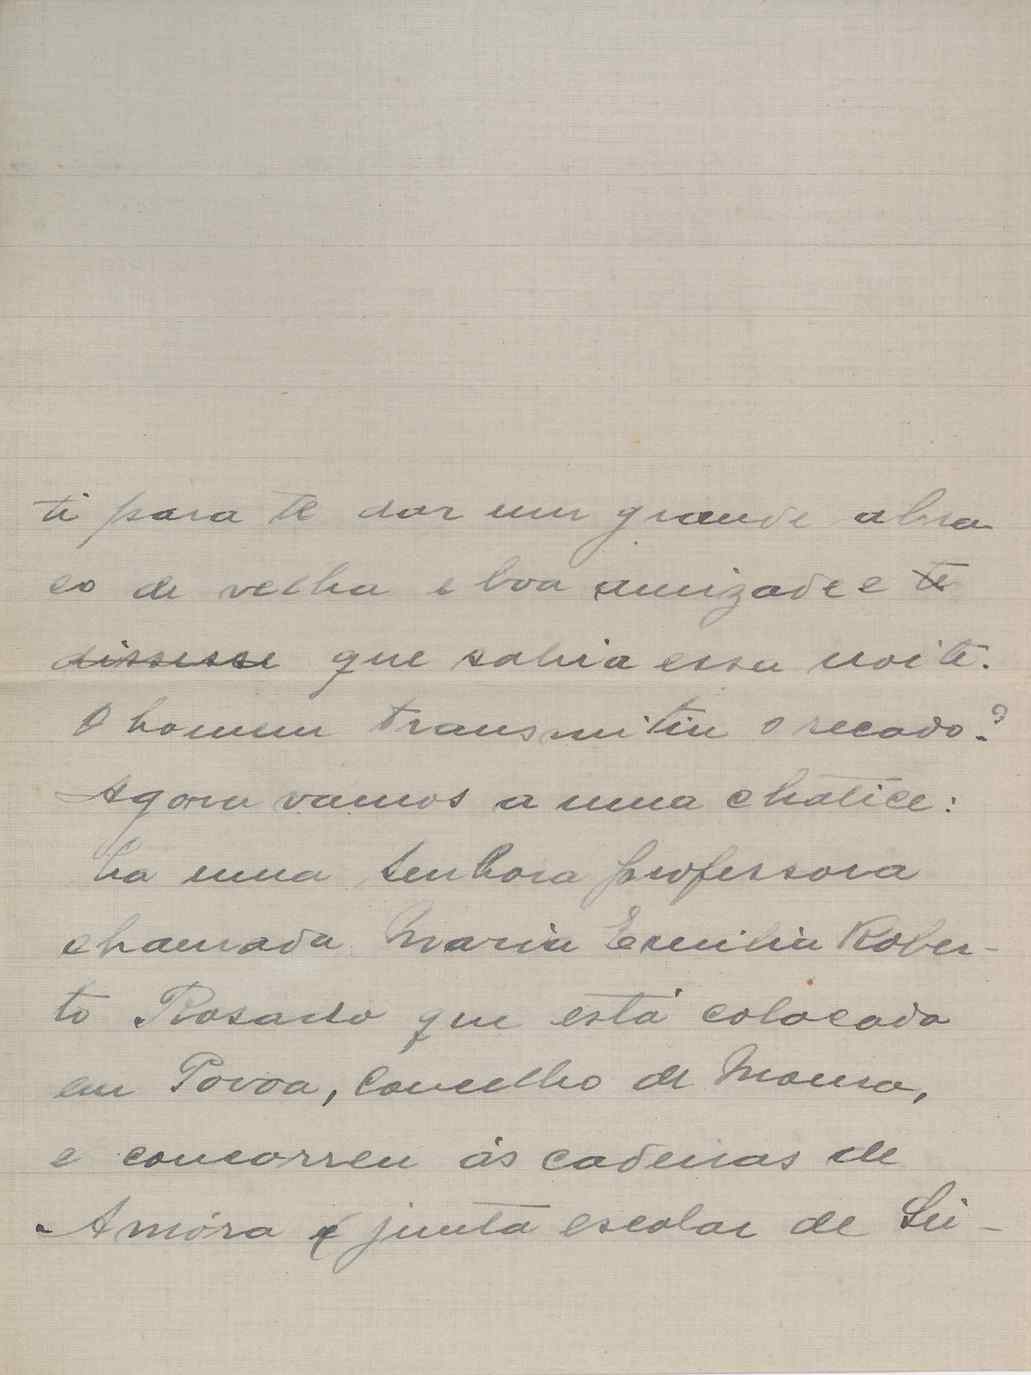 ti para te dar um grande abra-
ço de velha e boa amizade e te
dissesse que sahia essa noite.
O homem transmitiu o recado?
Agora vamos a uma chatice:
ha uma Senhora professora
chamada Maria Emilia Rober-
to Rosado que está colocada
em Povoa, Concelho de Moura,
e concorreu ás cadeiras de
Amóra e junta escolar de Sei-